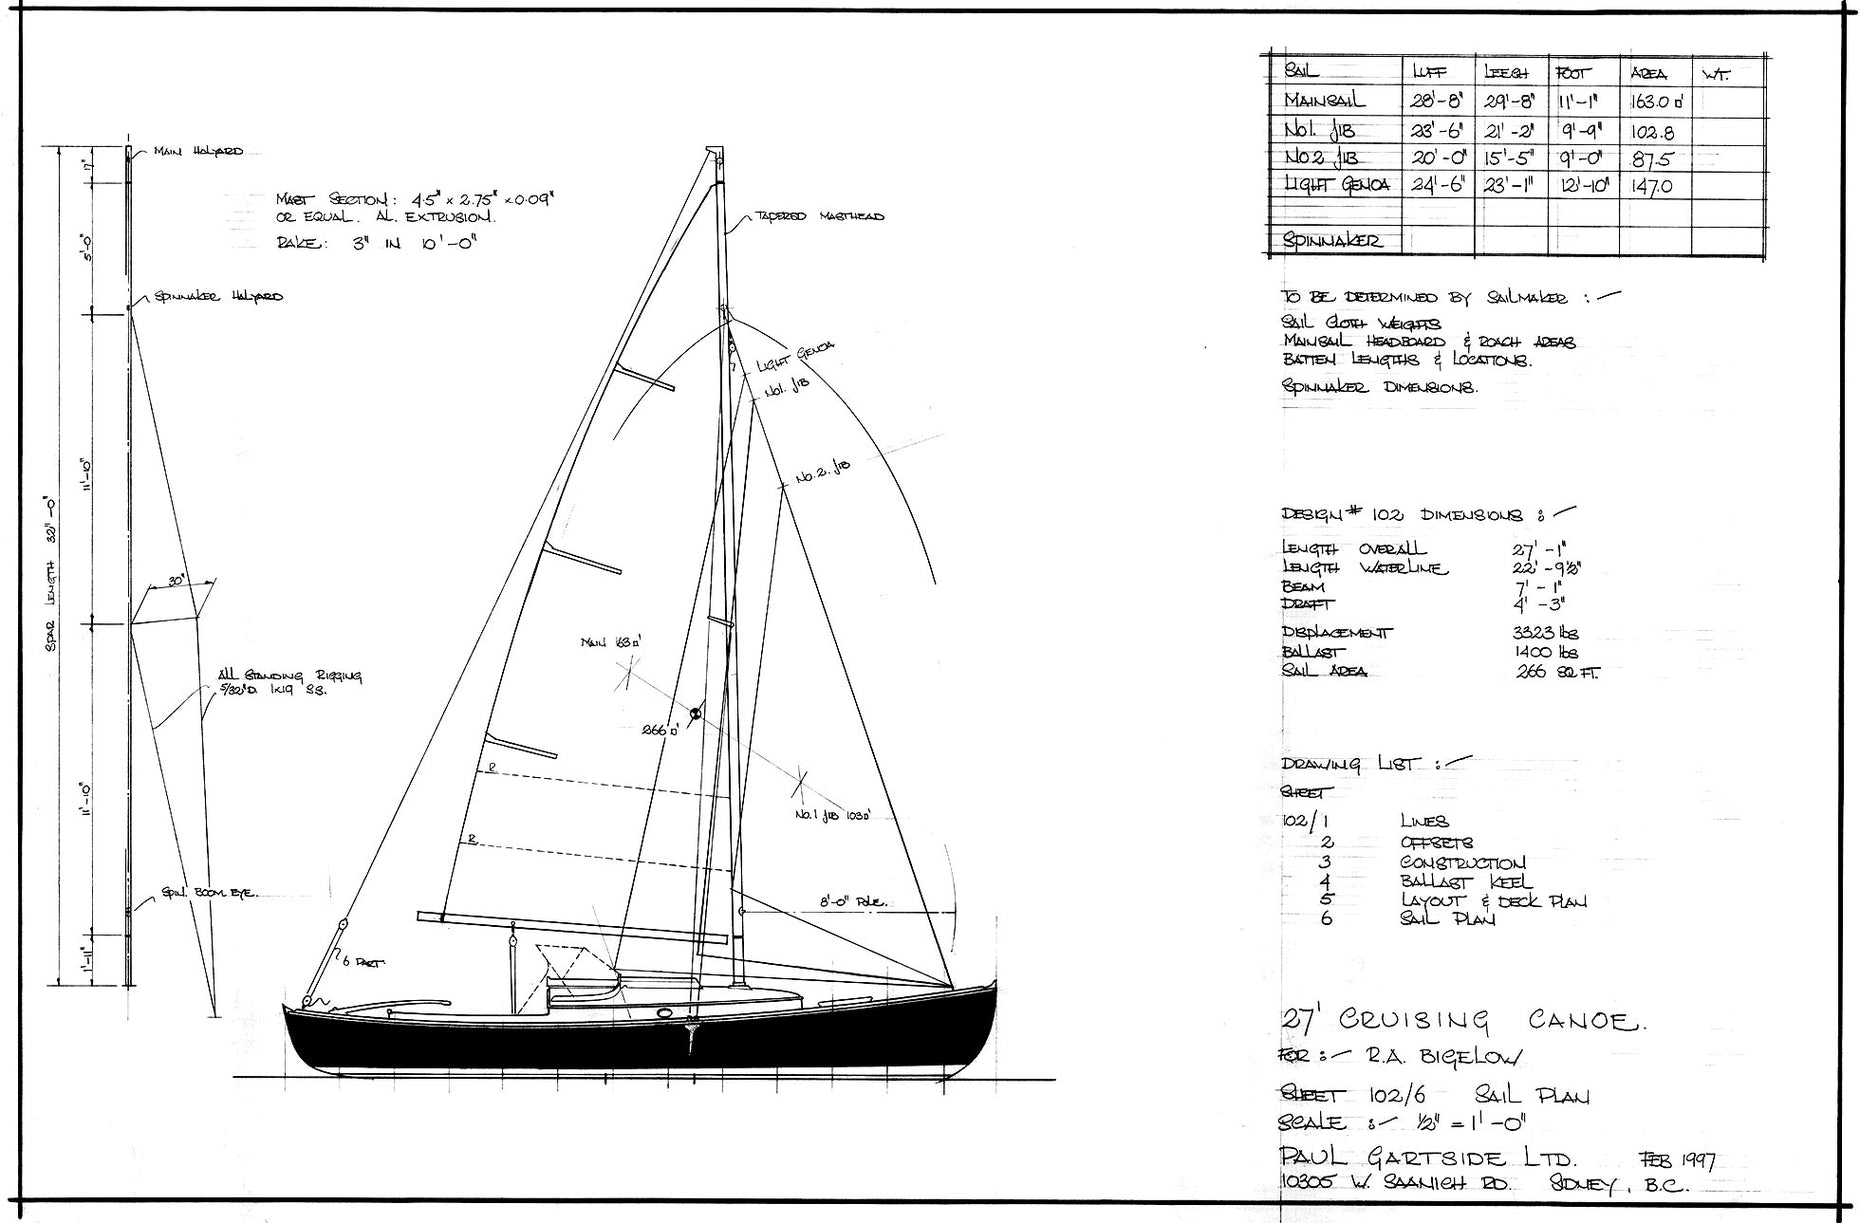 SAIL LUFF LEECH FOOT AREA WT.
MAINSAIL 28'-8" 29'-8" 11'-1" 163.0 □'
No1. JIB 23'-6" 21'-2" 9'-9" 102.8
No 2 JIB 20'-0" 15'-5" 9'-0" 87.5
LIGHT GENOA 24'-6" 23'-1" 12'-10" 147.0
SPINNAKER
TO BE DETERMINED BY SAILMAKER :-
SAIL CLOTH WEIGHTS
MAINSAIL HEADBOARD & ROACH AREAS
BATTEN LENGTHS & LOCATIONS.
SPINNAKER DIMENSIONS.
DESIGN # 102 DIMENSIONS :-
LENGTH OVERALL 27'-1"
LENGTH WATERLINE 22'-9½"
BEAM 7'-1"
DRAFT 4'-3"
DISPLACEMENT 3323 lbs
BALLAST 1400 lbs
SAIL AREA 266 SQ FT.
DRAWING LIST :-
SHEET
102/1 LINES
2 OFFSETS
3 CONSTRUCTION
4 BALLAST KEEL
5 LAYOUT & DECK PLAN
6 SAIL PLAN
27' CRUISING CANOE.
FOR :- R.A. BIGELOW
SHEET 102/6 SAIL PLAN
SCALE :- ½" = 1'-0"
PAUL GARTSIDE LTD. FEB 1997
10305 W. SAANICH RD. SIDNEY, B.C.
MAIN HALYARD
MAST SECTION: 4.5" x 2.75" x 0.09"
OR EQUAL. AL. EXTRUSION.
RAKE: 3" IN 10'-0"
SPINNAKER HALYARD
5'-0"
11'-10"
SPAR LENGTH 32'-0"
30"
ALL STANDING RIGGING
5/32"D. 1x19 SS.
11'-10"
SPIN. BOOM EYE.
1'-11"
TAPERED MASTHEAD
LIGHT GENOA
No1. JIB
No. 2. JIB
MAIN 163 □'
266 □'
No. 1 JIB 103 □'
R
R
8'-0" POLE.
6 PART